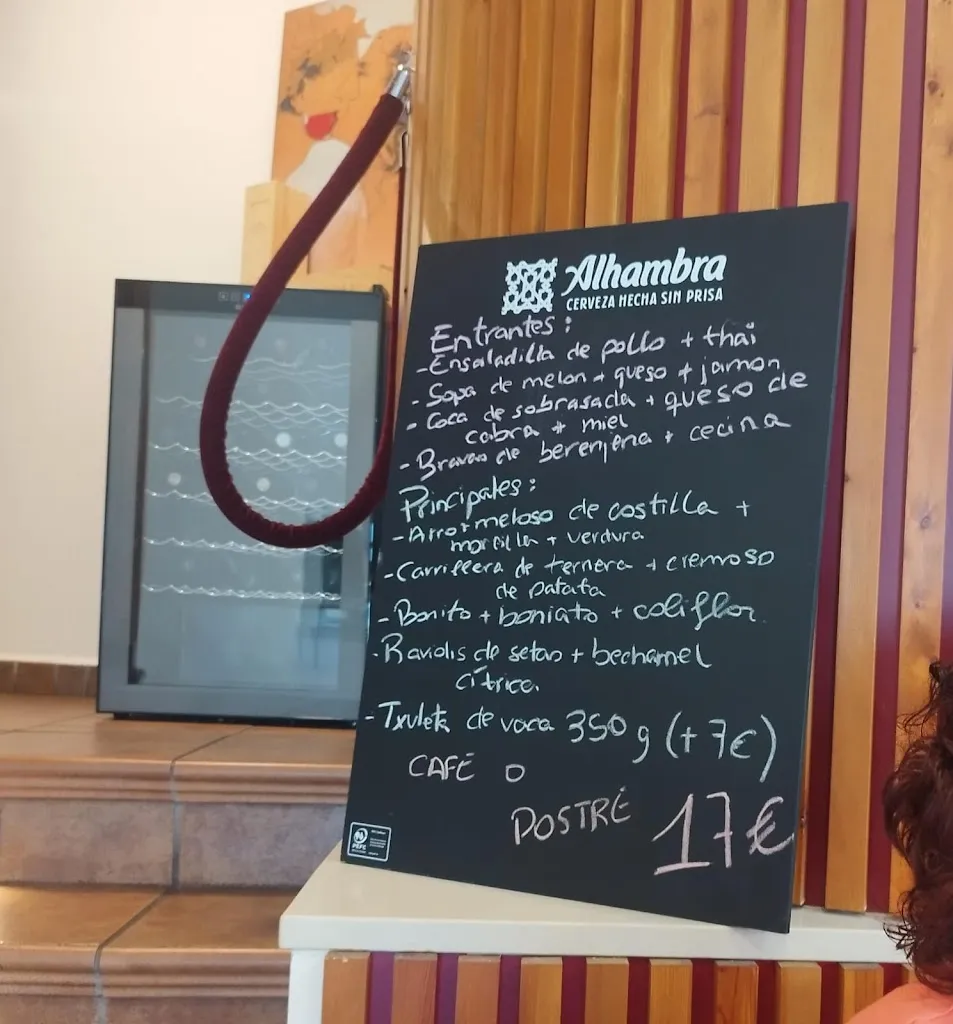 Alhambra
CERVEZA HECHA SIN PRISA
Entrantes:
-Ensaladilla de pollo + thai
- Sopa de melon + queso + jamon
- Coca de sobrasada + queso de
cabra + miel
- Bravas de berenjena + cecina
Principales:
-Arroz meloso de costilla +
morcilla + verdura
-Carrillera de ternera + cremoso
de patata
- Bonito + boniato + coliflor.
-Raviolis de setas + bechamel
cítrica.
-Txuleta de vaca 350 g (+7€)
CAFÉ O
POSTRE 17€
PEFC